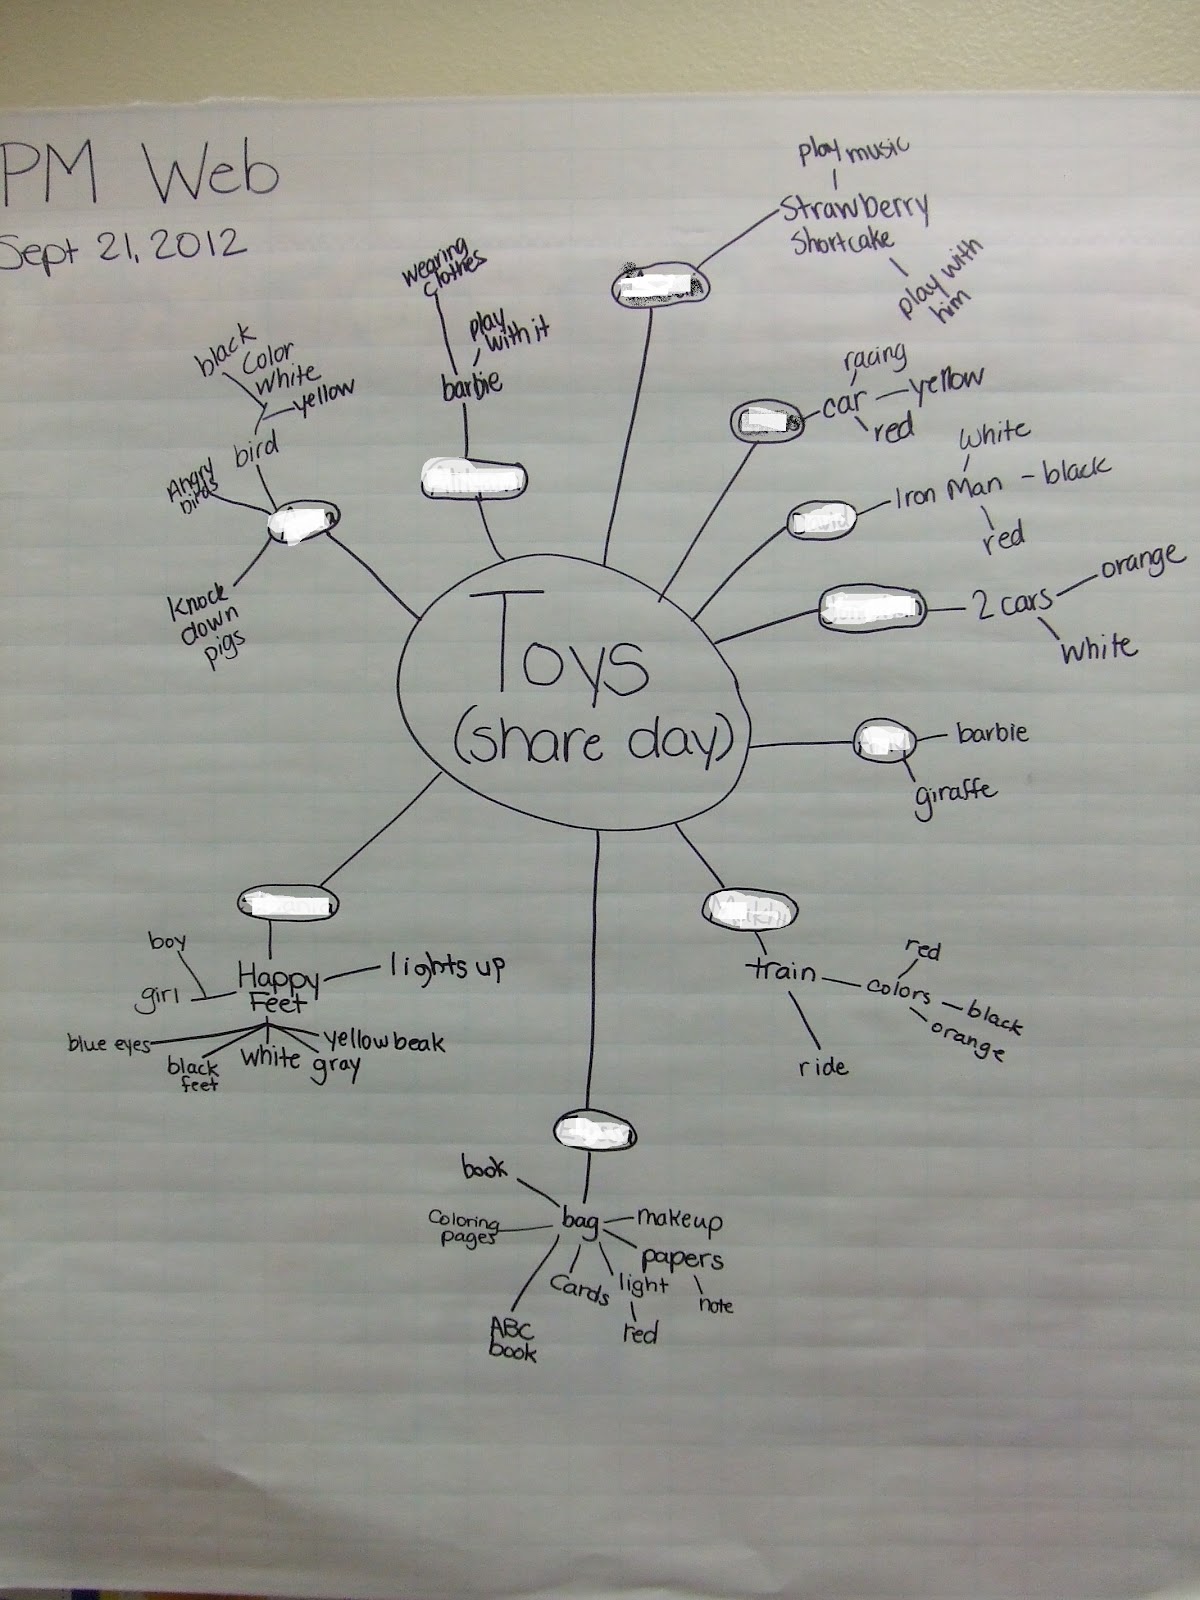 PM Web
Sept 21, 2012
play music
Strawberry
Shortcake
play with
him
wearing
clothes
play
with it
barbie
black
Color
White
yellow
bird
Angry
birds
Knock
down
pigs
racing
car
yellow
red
White
Iron Man
black
red
2 cars
orange
White
Toys
(share day)
barbie
giraffe
boy
girl
Happy
Feet
lights up
blue eyes
black
feet
white
gray
yellow beak
train
colors
red
black
orange
ride
book
Coloring
pages
bag
makeup
papers
note
Cards
light
red
ABC
book